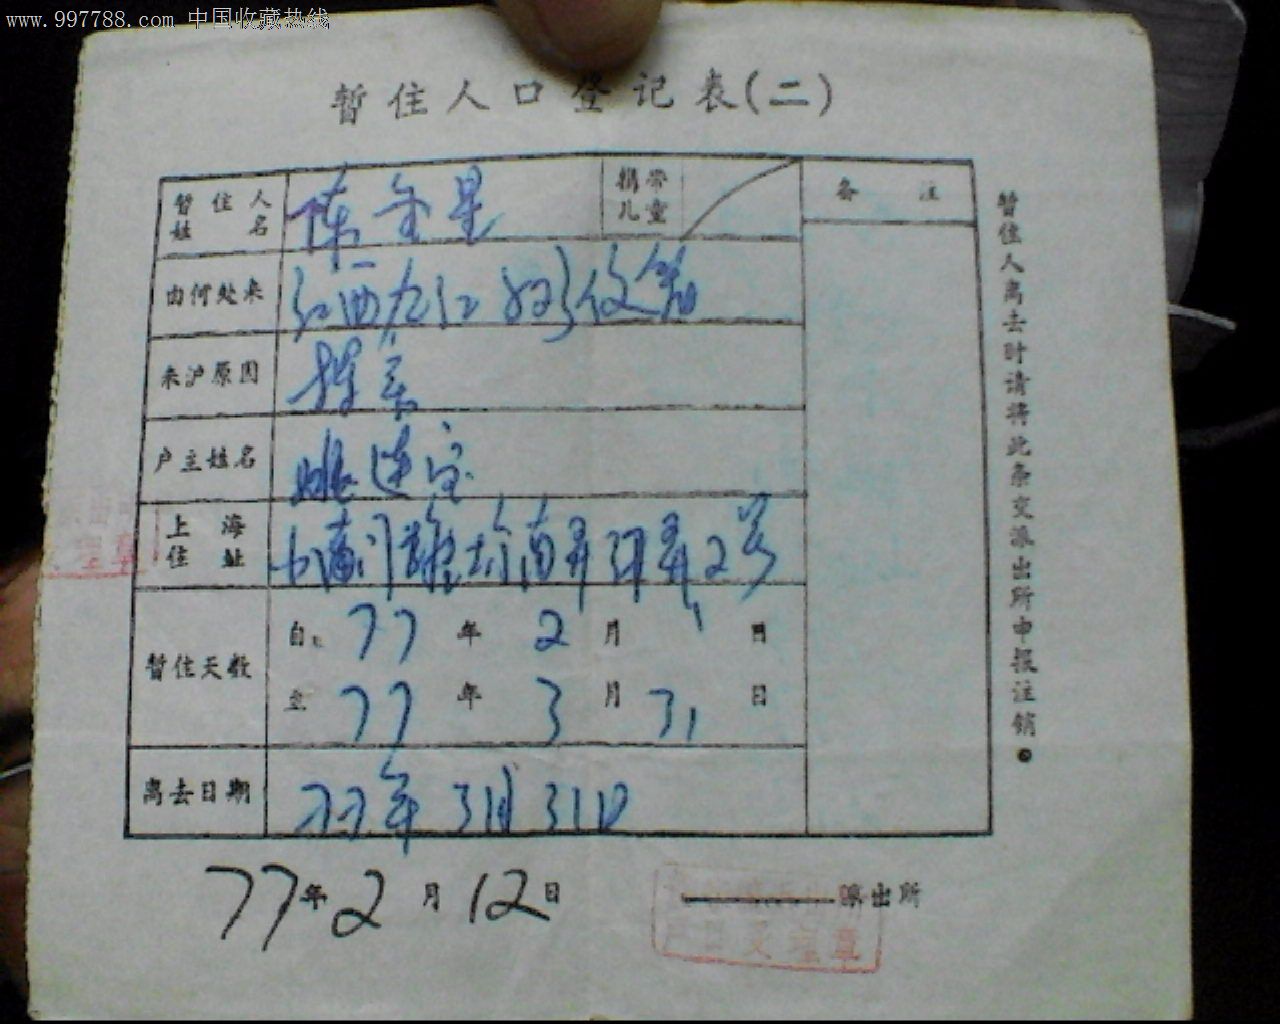 www.997788.com 中国收藏热线
暂住人口登记表(二)
暂住人姓名 陈金星 携带儿童 备注
由何处来 江西九江
来沪原因 探亲
户主姓名 姚连宝
上海住址 南弄 弄2号
暂住天数 自 77年2月1日
至 77年3月31日
离去日期 77年3月31日
77年2月12日 派出所
户口受理章
暂住人离去时请将此条交派出所申报注销。